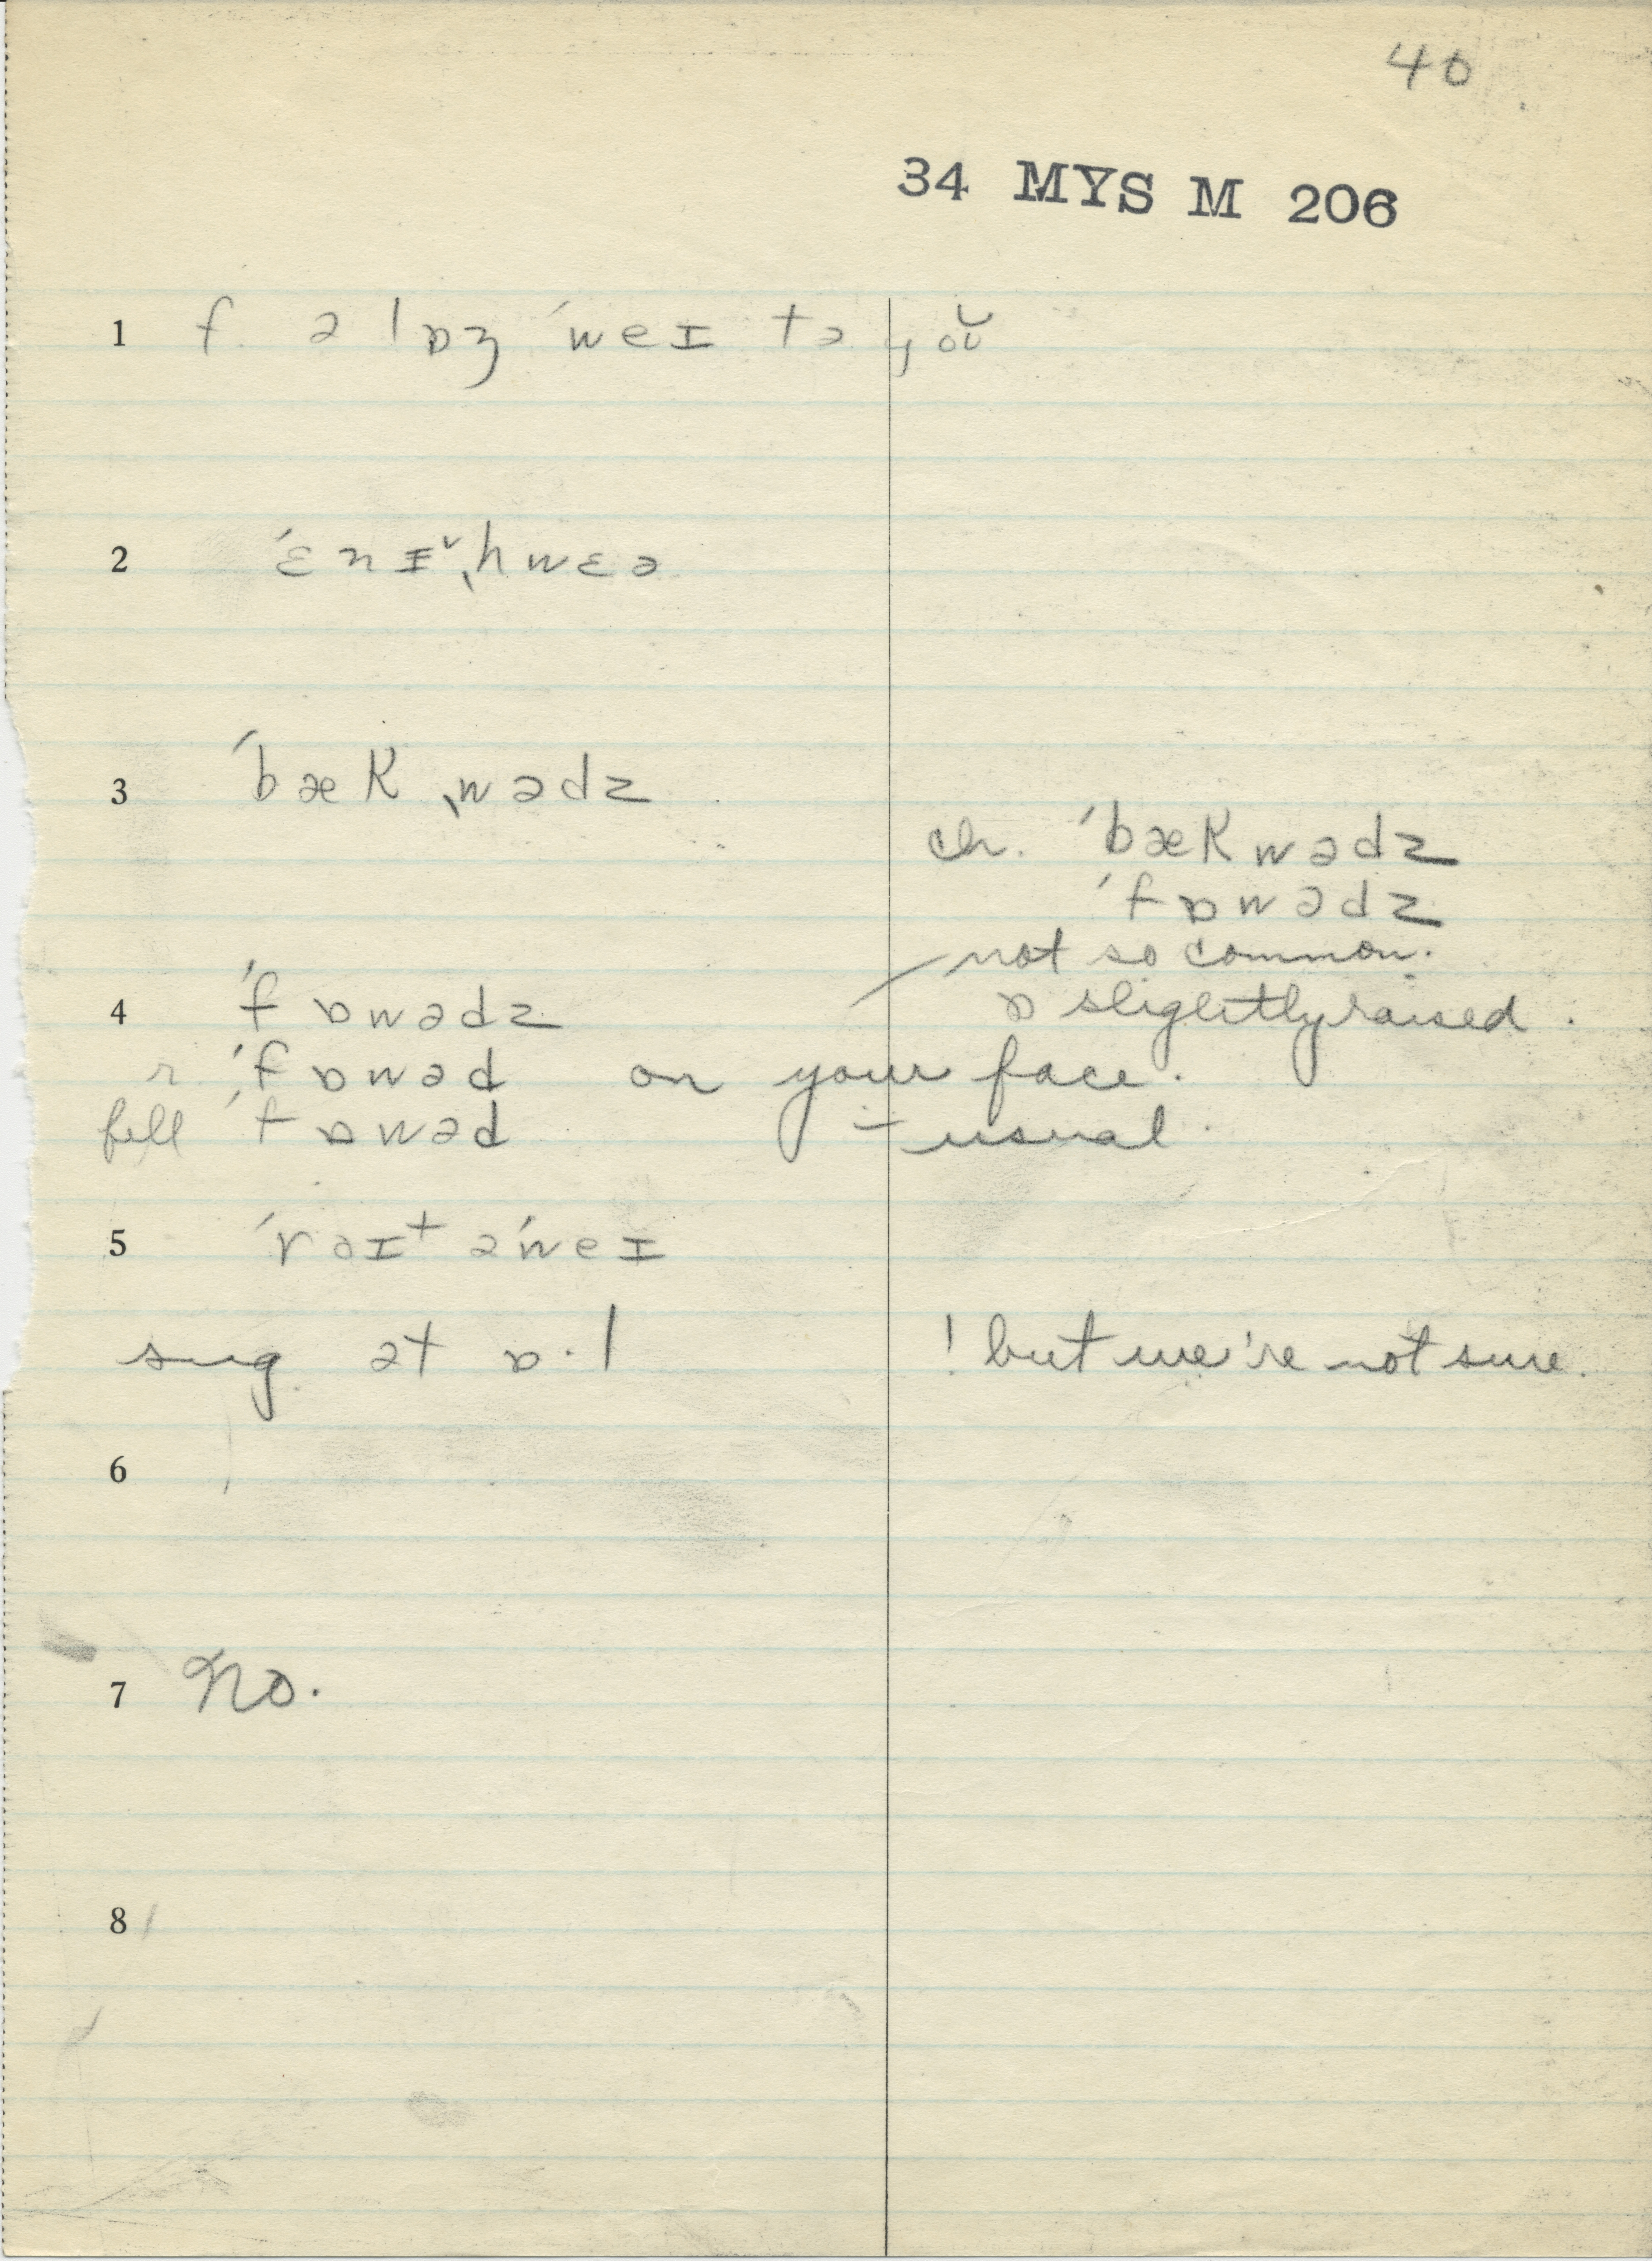 40
34 MYS M 206
1 f. ə lɒʒ ˈweɪ tə ˌgoʊ̆
2 ˈɛnɪ˅ˌhwɛə
3 ˈbæk ˌwədz
ch. ˈbækwədz
ˈfɒwədz
not so common.
4 ˈfɒwədz ɒ slightly raised.
r ˈfɒwəd on your face.
fell ˈfɒwəd – usual.
5 ˈrəɪt əˈweɪ
sug. ət ɒ·l ! but we're not sure.
6
7 No.
8